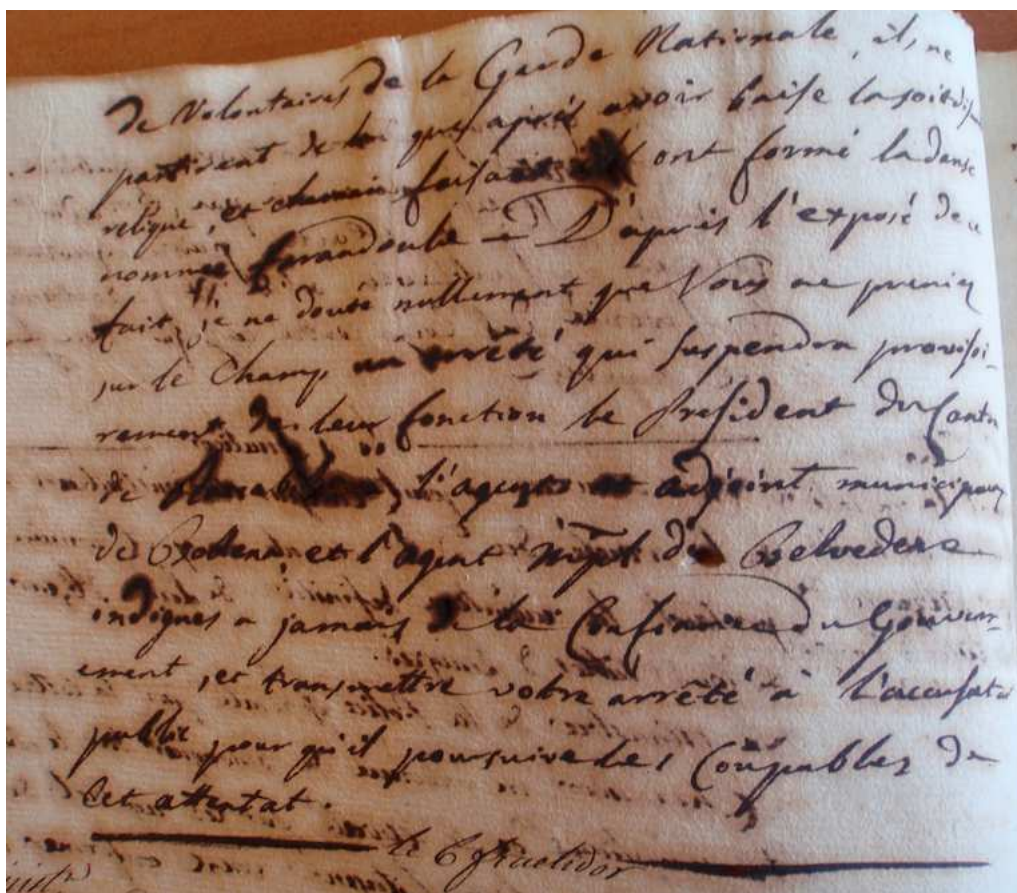 de Volontaires de la Garde Nationale, ils ne
partirent de là qu'après avoir baisé la soit dis
relique, et chemin faisant ont formé la danse
nommée farandoule = D'après l'exposé de ce
fait, je ne doute nullement que Vous ne preniez
sur le Champ un arrêté qui suspendra provisoi-
rement de leur fonction le Président du Canton
de l'agent et adjoint municipaux
de et l'agent Mpal de Belvedere
indignes a jamais de la Confiance du Gouvern-
ement, et transmettre votre arrêté a l'accusate
public pour qu'il poursuive les Coupables de
Cet attentat.
le 6 fructidor